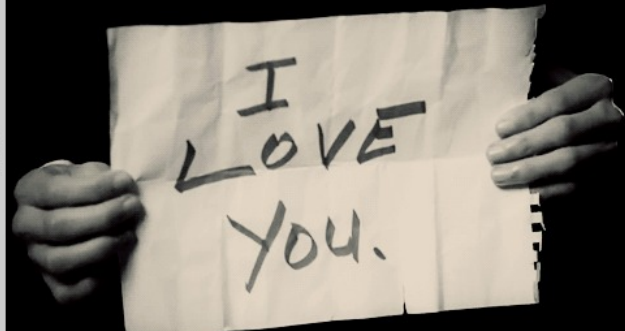 I
LOVE
YOU.